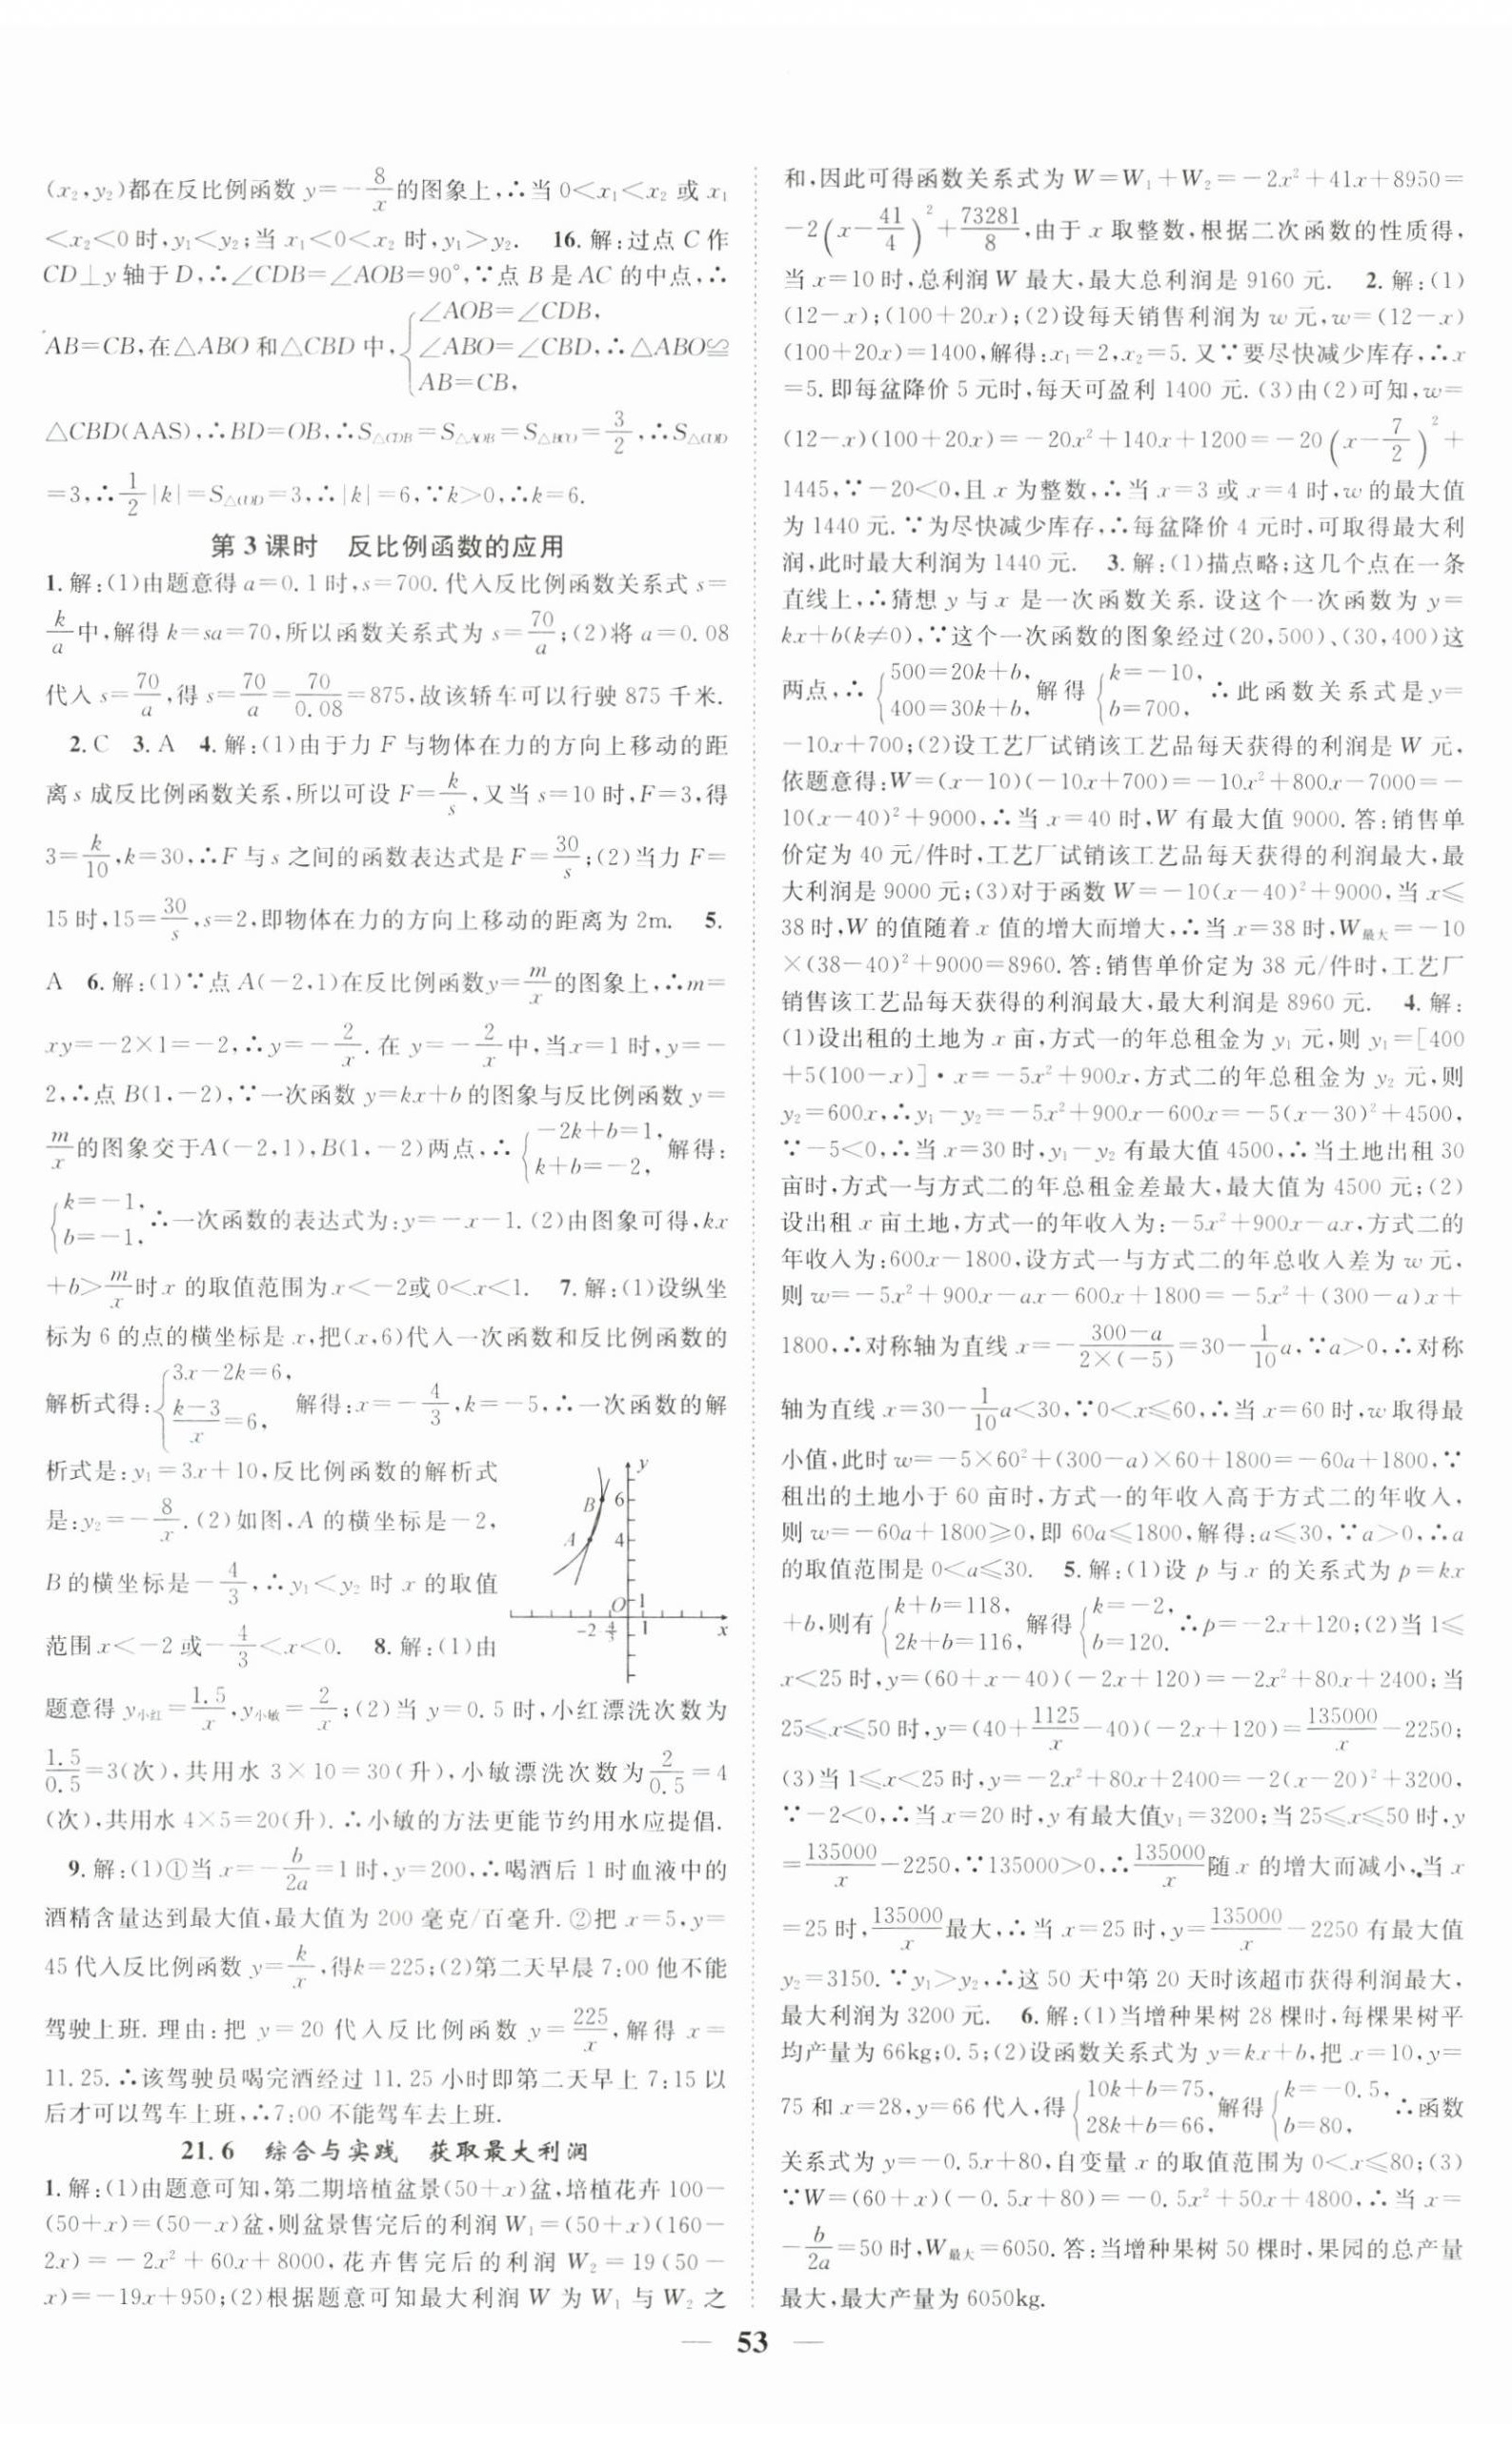 (x₂,y₂)都在反比例函数 y=-8/x的图象上,∴当 0<x₁<x₂ 或 x₁
<x₂<0 时,y₁<y₂;当 x₁<0<x₂ 时,y₁>y₂. 16.解:过点 C 作
CD⊥y 轴于 D,∴∠CDB=∠AOB=90°,∵点 B 是 AC 的中点,∴
AB=CB,在△ABO 和△CBD 中,{∠AOB=∠CDB, ∠ABO=∠CBD, AB=CB, ∴△ABO≌
△CBD(AAS),∴BD=OB,∴S△CDB=S△AOB=S△BCO=3/2,∴S△COD
=3,∴1/2|k|=S△COD=3,∴|k|=6,∵k>0,∴k=6.
第 3 课时 反比例函数的应用
1.解:(1)由题意得 a=0.1 时,s=700.代入反比例函数关系式 s=
k/a中,解得 k=sa=70,所以函数关系式为 s=70/a;(2)将 a=0.08
代入 s=70/a,得 s=70/a=70/0.08=875,故该轿车可以行驶 875 千米.
2.C 3.A 4.解:(1)由于力 F 与物体在力的方向上移动的距
离 s 成反比例函数关系,所以可设 F=k/s,又当 s=10 时,F=3,得
3=k/10,k=30,∴F 与 s 之间的函数表达式是 F=30/s;(2)当力 F=
15 时,15=30/s,s=2,即物体在力的方向上移动的距离为 2m. 5.
A 6.解:(1)∵点 A(-2,1)在反比例函数y=m/x的图象上,∴m=
xy=-2×1=-2,∴y=-2/x.在 y=-2/x中,当x=1 时,y=-
2,∴点 B(1,-2),∵一次函数 y=kx+b 的图象与反比例函数 y=
m/x的图象交于A(-2,1),B(1,-2)两点,∴{-2k+b=1, k+b=-2, 解得:
{k=-1, b=-1, ∴一次函数的表达式为:y=-x-1.(2)由图象可得,kx
+b>m/x时 x 的取值范围为x<-2或0<x<1. 7.解:(1)设纵坐
标为 6 的点的横坐标是 x,把(x,6)代入一次函数和反比例函数的
解析式得:{3x-2k=6, (k-3)/x=6, 解得:x=-4/3,k=-5,∴一次函数的解
析式是:y₁=3x+10,反比例函数的解析式
是:y₂=-8/x.(2)如图,A 的横坐标是-2,
B 的横坐标是-4/3,∴y₁<y₂ 时 x 的取值
范围x<-2 或-4/3<x<0. 8.解:(1)由
y
B 6
A 4
O 1
-2 4/3 1 x
题意得 y小红=1.5/x,y小敏=2/x;(2)当 y=0.5 时,小红漂洗次数为
1.5/0.5=3(次),共用水 3×10=30(升),小敏漂洗次数为2/0.5=4
(次),共用水 4×5=20(升).∴小敏的方法更能节约用水应提倡.
9.解:(1)①当 x=-b/2a=1 时,y=200,∴喝酒后 1 时血液中的
酒精含量达到最大值,最大值为 200 毫克/百毫升.②把 x=5,y=
45 代入反比例函数 y=k/x,得k=225;(2)第二天早晨 7:00 他不能
驾驶上班.理由:把 y=20 代入反比例函数 y=225/x,解得 x=
11.25.∴该驾驶员喝完酒经过 11.25 小时即第二天早上 7:15 以
后才可以驾车上班,∴7:00 不能驾车去上班.
21.6 综合与实践 获取最大利润
1.解:(1)由题意可知,第二期培植盆景(50+x)盆,培植花卉 100-
(50+x)=(50-x)盆,则盆景售完后的利润 W₁=(50+x)(160-
2x)=-2x²+60x+8000,花卉售完后的利润 W₂=19(50-
x)=-19x+950;(2)根据题意可知最大利润 W 为 W₁ 与 W₂ 之
和,因此可得函数关系式为 W=W₁+W₂=-2x²+41x+8950=
-2(x-41/4)²+73281/8,由于 x 取整数,根据二次函数的性质得,
当 x=10 时,总利润 W 最大,最大总利润是 9160 元. 2.解:(1)
(12-x);(100+20x);(2)设每天销售利润为 w 元,w=(12-x)
(100+20x)=1400,解得:x₁=2,x₂=5.又∵要尽快减少库存,∴x
=5.即每盆降价 5 元时,每天可盈利 1400 元.(3)由(2)可知,w=
(12-x)(100+20x)=-20x²+140x+1200=-20(x-7/2)²+
1445,∵-20<0,且 x 为整数,∴当 x=3 或 x=4 时,w 的最大值
为 1440 元.∵为尽快减少库存,∴每盆降价 4 元时,可取得最大利
润,此时最大利润为 1440 元. 3.解:(1)描点略;这几个点在一条
直线上,∴猜想 y 与 x 是一次函数关系.设这个一次函数为 y=
kx+b(k≠0),∵这个一次函数的图象经过(20,500)、(30,400)这
两点,∴{500=20k+b, 400=30k+b, 解得{k=-10, b=700, ∴此函数关系式是 y=
-10x+700;(2)设工艺厂试销该工艺品每天获得的利润是 W 元,
依题意得:W=(x-10)(-10x+700)=-10x²+800x-7000=-
10(x-40)²+9000,∴当 x=40 时,W 有最大值 9000.答:销售单
价定为 40 元/件时,工艺厂试销该工艺品每天获得的利润最大,最
大利润是 9000 元;(3)对于函数 W=-10(x-40)²+9000,当 x≤
38 时,W 的值随着 x 值的增大而增大,∴当 x=38 时,W最大=-10
×(38-40)²+9000=8960.答:销售单价定为 38 元/件时,工艺厂
销售该工艺品每天获得的利润最大,最大利润是 8960 元. 4.解:
(1)设出租的土地为 x 亩,方式一的年总租金为 y₁ 元,则 y₁=[400
+5(100-x)]·x=-5x²+900x,方式二的年总租金为 y₂ 元,则
y₂=600x,∴y₁-y₂=-5x²+900x-600x=-5(x-30)²+4500,
∵-5<0,∴当 x=30 时,y₁-y₂ 有最大值 4500,∴当土地出租 30
亩时,方式一与方式二的年总租金差最大,最大值为 4500 元;(2)
设出租 x 亩土地,方式一的年收入为:-5x²+900x-ax,方式二的
年收入为:600x-1800,设方式一与方式二的年总收入差为 w 元,
则 w=-5x²+900x-ax-600x+1800=-5x²+(300-a)x+
1800,∴对称轴为直线 x=-(300-a)/(2×(-5))=30-1/10a,∵a>0,∴对称
轴为直线 x=30-1/10a<30,∵0<x≤60,∴当 x=60 时,w 取得最
小值,此时 w=-5×60²+(300-a)×60+1800=-60a+1800,∵
租出的土地小于 60 亩时,方式一的年收入高于方式二的年收入,
则 w=-60a+1800≥0,即 60a≤1800,解得:a≤30,∵a>0,∴a
的取值范围是 0<a≤30. 5.解:(1)设 p 与 x 的关系式为 p=kx
+b,则有{k+b=118, 2k+b=116, 解得{k=-2, b=120. ∴p=-2x+120;(2)当 1≤
x<25 时,y=(60+x-40)(-2x+120)=-2x²+80x+2400;当
25≤x≤50 时,y=(40+1125/x-40)(-2x+120)=135000/x-2250;
(3)当 1≤x<25 时,y=-2x²+80x+2400=-2(x-20)²+3200,
∵-2<0,∴当 x=20 时,y 有最大值y₁=3200;当 25≤x≤50 时,y
=135000/x-2250,∵135000>0,∴135000/x随 x 的增大而减小,当 x
=25 时,135000/x最大,∴当 x=25 时,y=135000/x-2250 有最大值
y₂=3150.∵y₁>y₂,∴这 50 天中第 20 天时该超市获得利润最大,
最大利润为 3200 元. 6.解:(1)当增种果树 28 棵时,每棵果树平
均产量为 66kg;0.5;(2)设函数关系式为 y=kx+b,把 x=10,y=
75 和 x=28,y=66 代入,得{10k+b=75, 28k+b=66, 解得{k=-0.5, b=80, ∴函数
关系式为 y=-0.5x+80,自变量 x 的取值范围为 0<x≤80;(3)
∵W=(60+x)(-0.5x+80)=-0.5x²+50x+4800,∴当 x=
-b/2a=50 时,W最大=6050.答:当增种果树 50 棵时,果园的总产量
最大,最大产量为 6050kg.
— 53 —